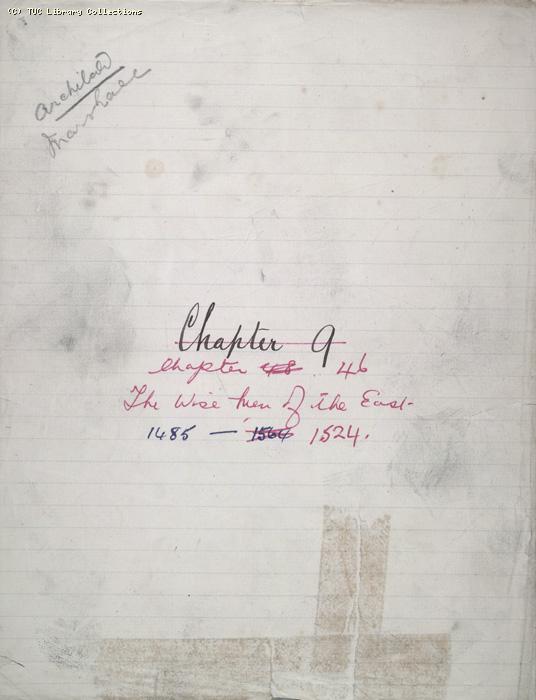 (C) TUC Library Collections
Archibald
Marshall
Chapter 9
Chapter 48 46
The Wise Men of the East
1485 — 1564 1524.